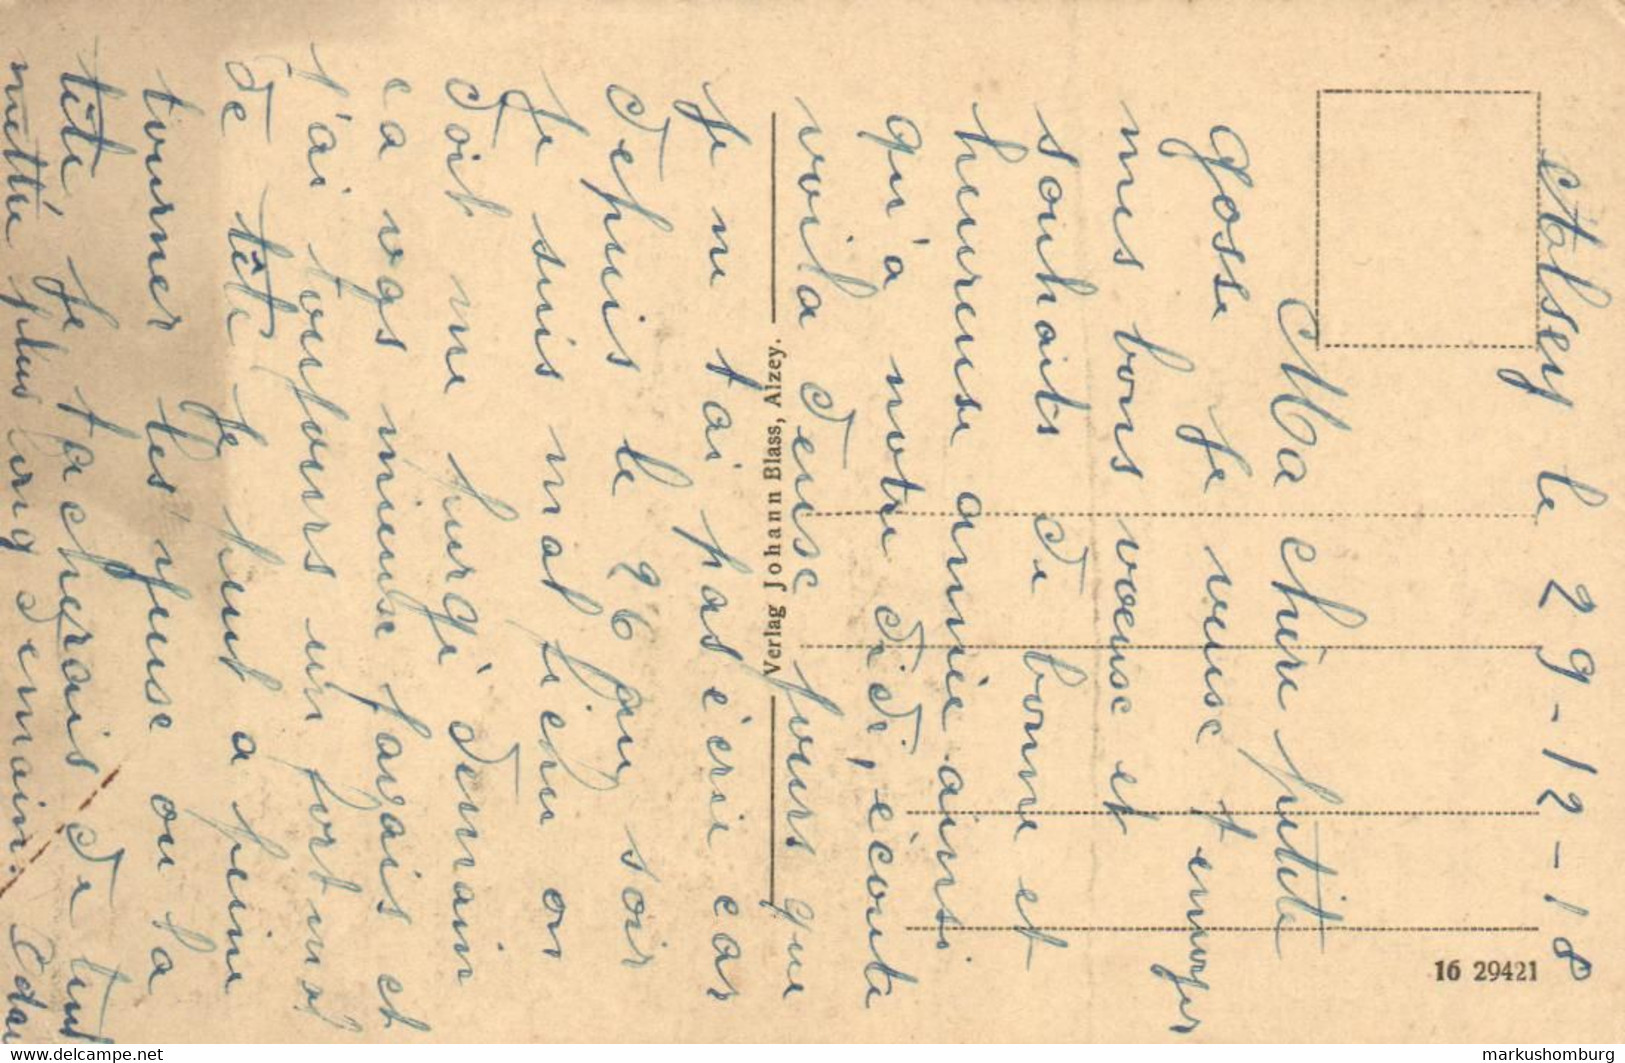 Alsey le 29-12-18
Ma chère petite
Gosse je veuse t'envoyer
mes bons voeuse et
souhaits de bonne et
heureuse année ainsi
qu'a notre didi, écoute
voila deuse jours que
je ne tai pas écrie car
depuis le 26 au soir
je suis mat fichu on
doit me purgé demain
ca vas mieuse favais et
j'ai toujours un fort mal
de tête je peut a peine
tourner les yeuse ou la
tête je tacherais de tent
mettre plus long demain.
Verlag Johann Blass, Alzey.
16 29421
delcampe.net
markushomburg